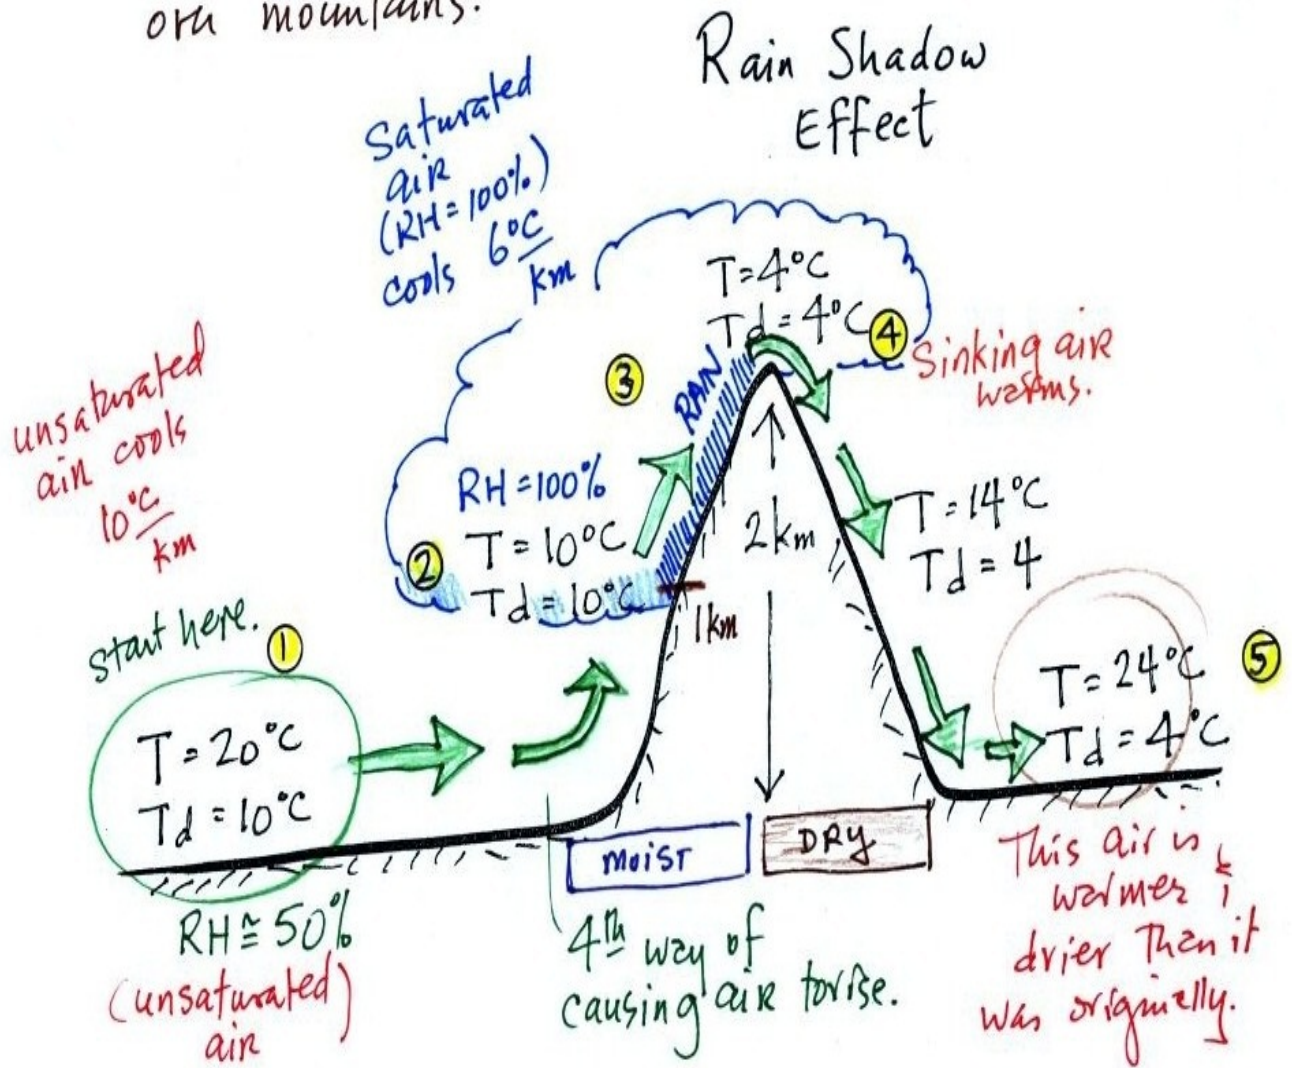 orn mountains.
Rain Shadow
Effect
Saturated
air
(RH=100%)
cools 6°C
km
unsaturated
air cools
10°C
km
start here.
1
T=20°C
Td=10°C
RH≅50%
(unsaturated)
air
2
RH=100%
T=10°C
Td=10°C
3
RAIN
T=4°C
Td=4°C
4
Sinking air
warms.
2km
1km
T=14°C
Td=4
T=24°C
Td=4°C
5
MOIST
DRY
4th way of
causing air to rise.
This air is
warmer &
drier than it
was originally.